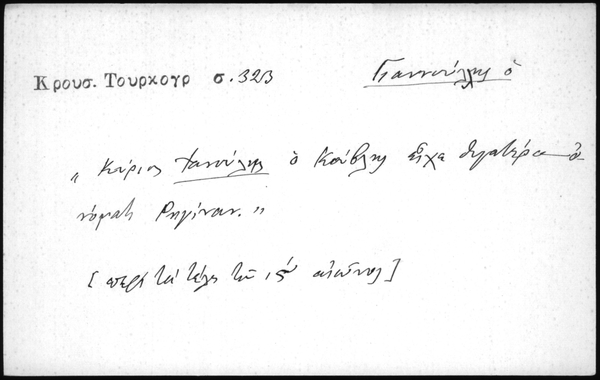 Κρουσ. Τουρκογρ σ. 323
Γιαννούλης ὁ
„ Κύριος Γιαννούλης ὁ Κούβλης εἶχε θυγατέρα ὀ-
νόματι Ρηγίναν. "
[περὶ τὰ τέλη τοῦ ις΄ αἰῶνος]